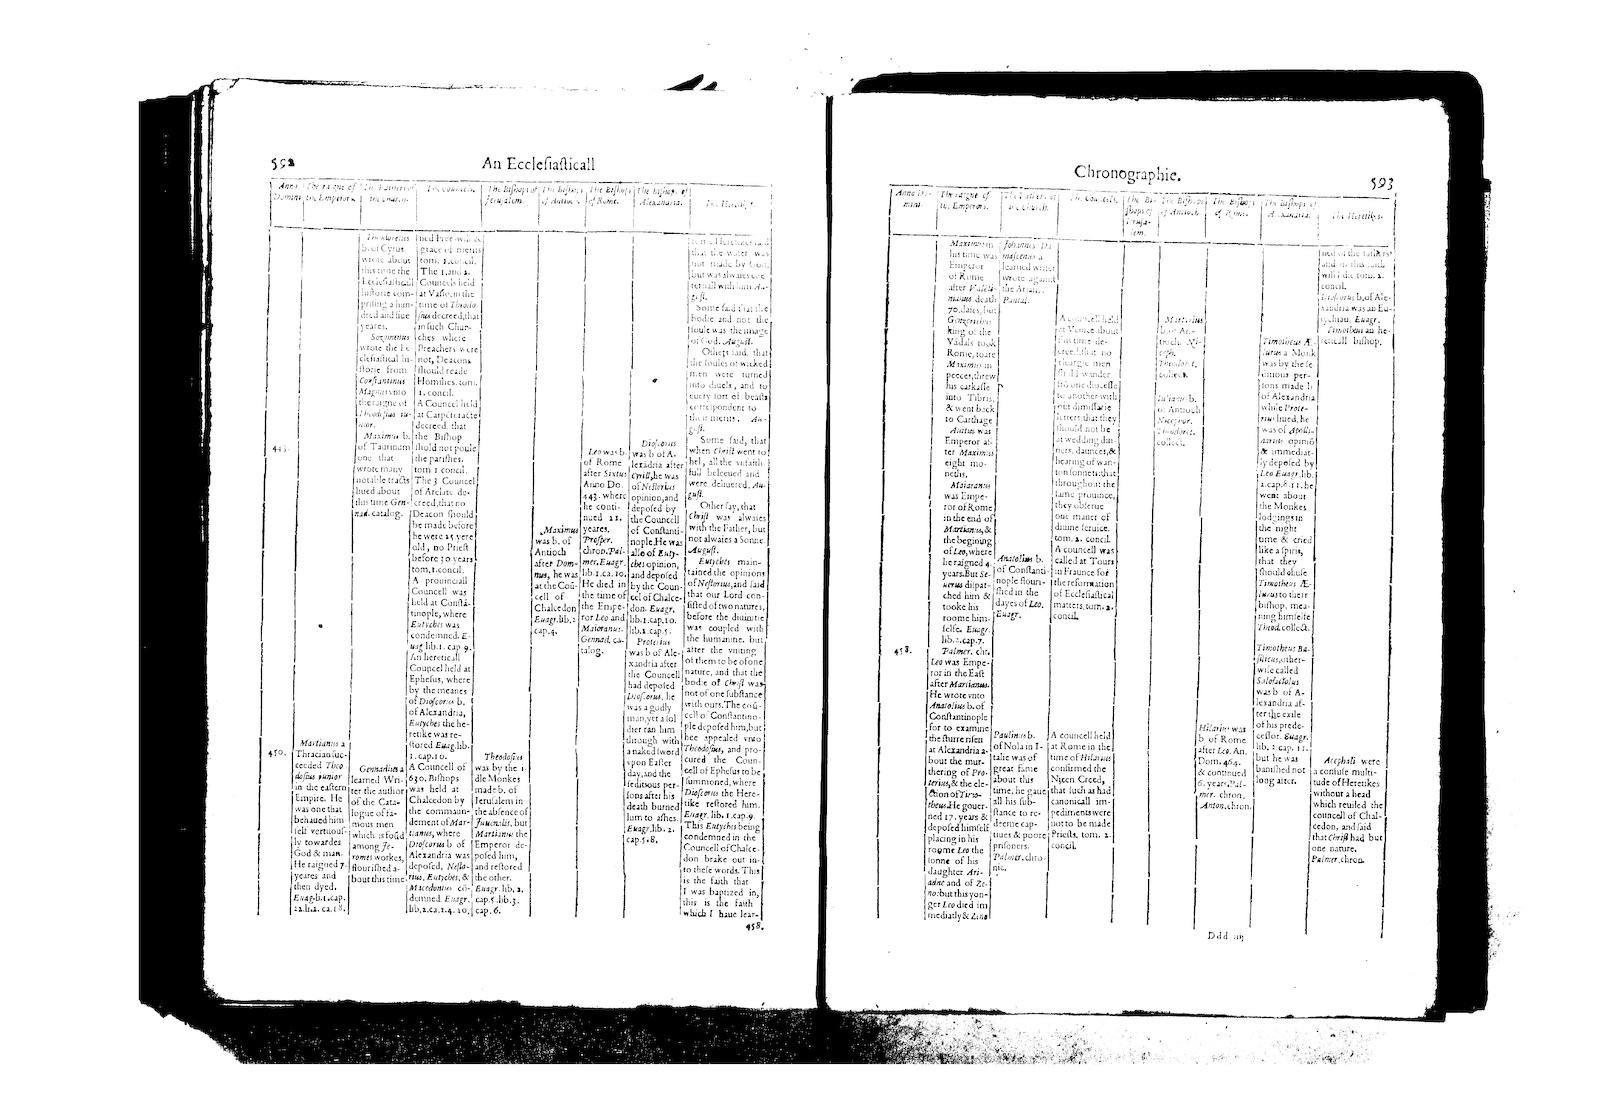 592
An Ecclesiasticall
Anno
Domini
The raigne of
the Emperors.
The Fathers of
the Church.
The Councels.
The Bishops of
Jerusalem.
The Bishops
of Antioch.
The Bishops
of Rome.
The Bishops of
Alexandria.
The Heretikes.
443.
450.
Martianus a
Thracian suc-
ceeded Theo-
dosius iunior
in the eastern
Empire. He
was one that
behaued him
self vertuous-
ly towardes
God & man.
He raigned 7.
yeares and
then dyed.
Euag. li.1.cap.
22.li.2. ca.18.
Theodoretus
b. of Cyrus
wrote about
this time the
Ecclesiasticall
historie com-
prising a hun-
dred and fiue
yeares.
Sozomenus
wrote the Ec-
clesiastical hi-
storie from
Constantinus
Magnus vnto
the raigne of
Theodosius iu-
nior.
Maximus b.
of Taurinum
one that
wrote many
notable tracts
liued about
this time Gen-
nad. catalog.
Gennadius a
learned Wri-
ter the author
of the Cata-
logue of fa-
mous men
which is foūd
among Je-
romes workes,
flourished a-
bout this time.
ned Free-will &
grace of merits
tom. 1.concil.
The 1. and 2.
Councels held
at Vasio, in the
time of Theodo-
sius decreed, that
in such Chur-
ches where
Preachers were
not, Deacons
should reade
Homilies. tom.
1. concil.
A Councel held
at Carpēteracte
decreed, that
the Bishop
should not poule
the parishes.
tom 1 concil.
The 3 Councel
of Arelate de-
creed, that no
Deacon should
be made before
he were 25 yere
old, no Priest
before 30 yeares
tom, 1. concil.
A prouinciall
Councell was
held at Constā-
tinople, where
Eutyches was
condemned. E-
uag lib. 1. cap 9.
An hereticall
Councel held at
Ephesus, where
by the meanes
of Dioscorus b.
of Alexandria,
Eutyches the he-
retike was re-
stored Euag. lib.
1. cap. 10.
A Councell of
630. Bishops
was held at
Chalcedon by
the commaun-
dement of Mar-
tianus, where
Dioscorus b of
Alexandria was
deposed, Nesto-
rius, Eutyches, &
Macedonius cō-
demned. Euagr.
lib, 2. ca. 2. 4. 10.
Theodosius
was by the i-
dle Monkes
made b. of
Jerusalem in
the absence of
Juuenalis, but
Martianus the
Emperor de-
posed him,
and restored
the other.
Euagr. lib, 2.
cap. 5. lib. 3.
cap. 6.
Maximus
was b. of
Antioch
after Dom-
nus, he was
at the Coū-
cell of
Chalcedon
Euagr. lib. 2
cap. 4.
Leo was b.
of Rome
after Sixtus
Anno Do.
443. where
he conti-
nued 21.
yeares.
Prosper.
chron. Pal-
mer. Euagr.
lib. 1. ca. 10.
He died in
the time of
the Empe-
ror Leo and
Maioranus.
Gennad. ca-
talog.
Dioscorus
was b of A-
lexādria after
Cyrill, he was
of Nestorius
opinion, and
deposed by
the Councell
of Constanti-
nople. He was
also of Euty-
ches opinion,
and deposed
by the Coun-
cel of Chalce-
don. Euagr.
lib. 1. cap. 10.
lib. 2. cap. 5.
Proterius
was b of Ale-
xandria after
the Councell
had deposed
Dioscorus, he
was a godly
man, yet a sol
dier ran him
through with
a naked sword
vpon Easter
day, and the
seditious per-
sons after his
death burned
him to ashes.
Euagr. lib. 2.
cap. 5. 8.
that the water was
not made by God,
but was alwaies coe
ternall with him. Au-
gust.
Some said that the
bodie and not the
soule was the image
of God. August.
Others said, that
the soules of wicked
men were turned
into diuels, and to
euery sort of beasts
correspondent to
their merits. Au-
gust.
Some said, that
when Christ went to
hel, all the vnfaith-
full beleeued and
were deliuered. Au-
gust.
Other say, that
Christ was alwaies
with the Father, but
not alwaies a Sonne.
August.
Eutyches main-
tained the opinions
of Nestorius, and said
that our Lord con-
sisted of two natures,
before the diuinitie
was coupled with
the humanitie. but
after the vniting
of them to be of one
nature, and that the
bodie of Christ was
not of one substance
with ours. The coū-
cell of Constantino-
ple deposed him, but
hee appealed vnto
Theodosius, and pro-
cured the Coun-
cell of Ephesus to be
summoned, where
Dioscorus the Here-
tike restored him.
Euagr. lib. 1. cap. 9.
This Eutyches being
condemned in the
Councell of Chalce-
don brake out in-
to these words. This
is the faith that
I was baptized in,
this is the faith
which I haue lear-
458.
Chronographie.
593
Anno Do-
mini.
The raigne of
the Emperors.
The Fathers of
the Church.
The Councels.
The Bi-
shops of
Jerusa-
lem.
The Bishops
of Antioch.
The Bishops
of Rome.
The Bishops of
Alexandria.
The Heretikes.
458.
Maximus in
his time was
Emperor
of Rome
after Valenti-
nianus death
70. daies, but
Genzerichus
king of the
Vādals tooke
Rome, toare
Maximus in
peeces, threw
his carkasse
into Tibris,
& went back
to Carthage
Auitus was
Emperor af-
ter Maximus
eight mo-
neths.
Maioranus
was Empe-
ror of Rome
in the end of
Martianus, &
the begining
of Leo, where
he raigned 4.
years. But Se-
uerus dispat-
ched him &
tooke his
roome him-
selfe. Euagr.
lib. 2. cap. 7.
Palmer. chr.
Leo was Empe-
ror in the East
after Martianus.
He wrote vnto
Anatolius b. of
Constantinople
for to examine
the sturre risen
at Alexandria a-
bout the mur-
thering of Pro-
terius, & the ele-
ction of Timo-
theus. He gouer-
ned 17. years &
deposed himself
placing in his
roome Leo the
sonne of his
daughter Ari-
adne and of Ze-
no: but this yon-
ger Leo died im
mediatly & Zeno
Johannes Da-
mascenus a
learned writer
wrote against
the Arians.
Pantal.
Anatolius b.
of Constanti-
nople flouri-
shed in the
dayes of Leo.
Euagr.
Paulinus b.
of Nola in I-
talie was of
great fame
about this
time, he gaue
all his sub-
stance to re-
deeme cap-
tiues & poore
prisoners.
Palmer. chro-
nic.
A councell held
at Venice about
this time de-
creed, that no
cleargie men
should wander
frō one diocesse
to another with-
out dimissarie
letters: that they
should not be
at wedding din-
ners, daunces, &
hearing of wan-
ton sonnets: that
throughout the
same prouince,
they obserue
one maner of
diuine seruice.
tom. 2. concil.
A councell was
called at Tours
in Fraunce for
the reformation
of Ecclesiastical
matters, tom. 2.
concil.
A councell held
at Rome in the
time of Hilarius
confirmed the
Nicen Creed,
that such as had
canonicall im-
pediments were
not to be made
Priests, tom. 2.
concil.
Martirius
b. of An-
tioch. Ni-
ceph.
Theodoret.
collect.
Julianus b.
of Antioch
Nicephor.
Theodoret.
collect.
Hilarius was
b of Rome
after Leo. An.
Dom. 464.
& continued
6. years. Pal-
mer. chron.
Anton. chron.
Timotheus Æ-
lurus a Monk
was by the se
ditious per-
sons made b
of Alexandria
while Prote-
rius liued, he
was of Apolli-
narius opiniō
& immediat-
ly deposed by
Leo Euagr. lib.
2. cap. 8. 11. he
went about
the Monkes
lodgings in
the night
time & cried
like a spirit,
that they
should chuse
Timotheus Æ-
lurus to their
bishop, mea-
ning himselfe
Theod. collect.
Timotheus Ba-
silicus, other-
wise called
Salofaciolus
was b of A-
lexandria af-
ter the exile
of his prede-
cessor. Euagr.
lib. 2 cap. 11.
but he was
banished not
long after.
ned of the fathers
and in this faith
will I die tom. 2.
concil.
Dioscorus b. of Ale-
xandria was an Eu-
tychian. Euagr.
Timotheus an he-
reticall bishop.
Acephali were
a confuse multi-
tude of Heretikes
without a head
which reuiled the
councell of Chal-
cedon, and said
that Christ had but
one nature.
Palmer. chron.
Ddd iiij